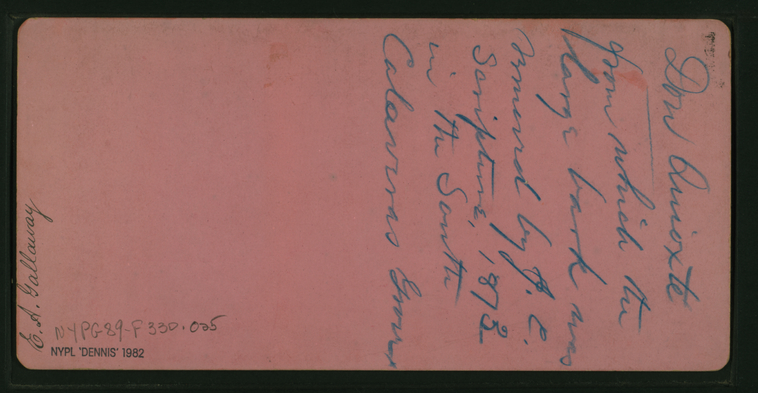 Don Quioxte
from which the
large bark was
removed by A. C.
Scripture, 1873
in the South
Calaveras Grove
E. A. Gallaway
NYPG89-F330.025
NYPL 'DENNIS' 1982